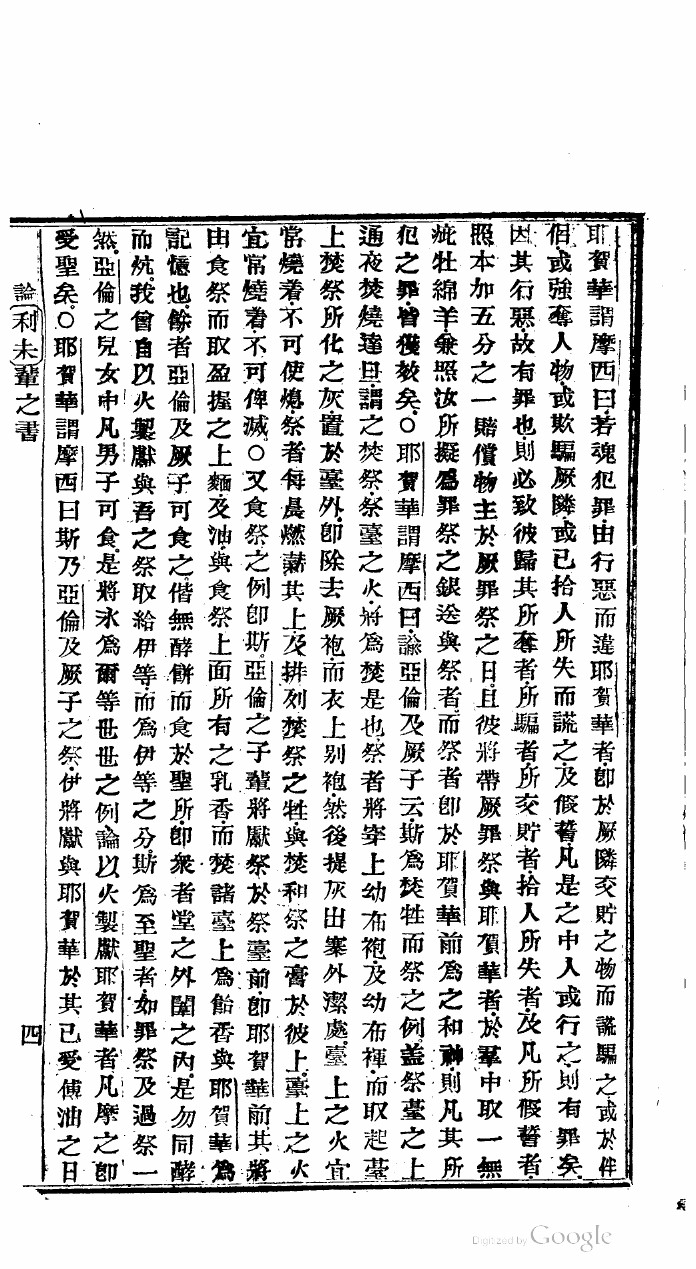 耶賀華謂摩西曰若魂犯罪由行惡而違耶賀華者卽於厥隣交貯之物而謊騙之或於伴
侶或強奪人物或欺騙厥隣或已拾人所失而謊之及假誓凡是之中人或行之則有罪矣
因其行惡故有罪也則必致彼歸其所奪者所騙者所交貯者拾人所失者及凡所假誓者
照本加五分之一賠償物主於厥罪祭之日且彼將帶厥罪祭與耶賀華者於羣中取一無
疵牡綿羊兼照汝所擬爲罪祭之銀送與祭者而祭者卽於耶賀華前爲之和神則凡其所
犯之罪皆獲赦矣○耶賀華謂摩西曰諭亞倫及厥子云斯爲焚牲而祭之例蓋祭臺之上
通夜焚燒達旦謂之焚祭祭臺之火將爲焚是也祭者將穿上幼布袍及幼布褌而取起臺
上焚祭所化之灰置於臺外卽除去厥袍而衣上別袍然後提灰出寨外潔處臺上之火宜
常燒着不可使熄祭者每晨燃薪其上及排列焚祭之牲與焚和祭之膏於彼上臺上之火
宜常燒着不可俾滅○又食祭之例卽斯亞倫之子輩將獻祭於祭臺前卽耶賀華前其將
由食祭而取盈握之上麵及油與食祭上面所有之乳香而焚諸臺上爲飴香與耶賀華爲
記憶也餘者亞倫及厥子可食之偕無酵餅而食於聖所卽衆者堂之外闈之內是勿同酵
而炕我曾自以火製獻與吾之祭取給伊等而爲伊等之分斯爲至聖者如罪祭及過祭一
然亞倫之兒女中凡男子可食是將永爲爾等世世之例論以火製獻耶賀華者凡摩之卽
受聖矣○耶賀華謂摩西曰斯乃亞倫及厥子之祭伊將獻與耶賀華於其已受傅油之日
論利未輩之書
四
Digitized by Google